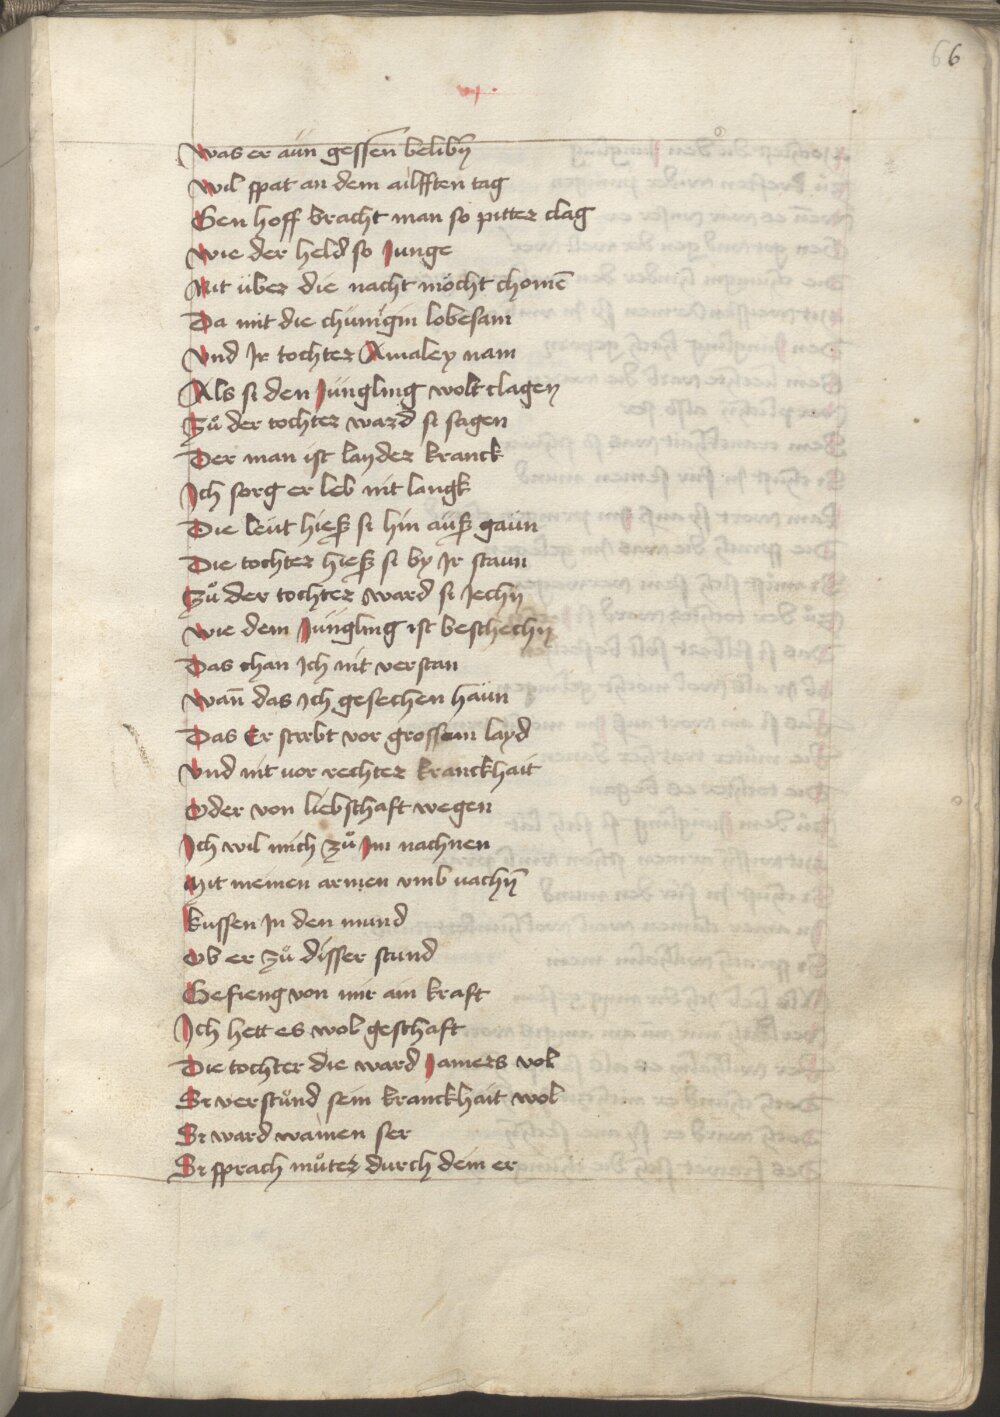 66
vj.
Was er aün gessen belibn̄
Wil spat an dem ailfften tag
Gen hoff bracht man so pitter clag
Wie der held so Junge
Nit über die nacht möcht chomē
Da mit die chünigin lobesam
Vnd Jr tochter Amaley nam
Als si den Jüngling wolt clagen
Zů der tochter ward si sagen
Der man ist layder kranck
Ich sorg er leb nit langk
Die leüt hieß si hin auß gaün
Die tochter hieß si by Jr staun
Zů der tochter ward si Jechn̄
Wie dem Jüngling ist beschechn̄
Das chan Jch nit verstan
Wan̄ das Jch gesechen haün
Das Er sterbt vor grossem layd
Vnd nit vor rechter kranckhait
Oder von liebschaft wegen
Ich wil mich zů Jm nachnen
Mit meinen armen vmb vachn̄
Kussen Jn den mund
Ob er zů disser stund
Gefieng von mir ain kraft
Ich hett es wol geschaft
Die tochter die ward Jamers vol
Sr verstůnd sein kranckhait wol
Sr ward wainen ser
Sr sprach můter durch dein er